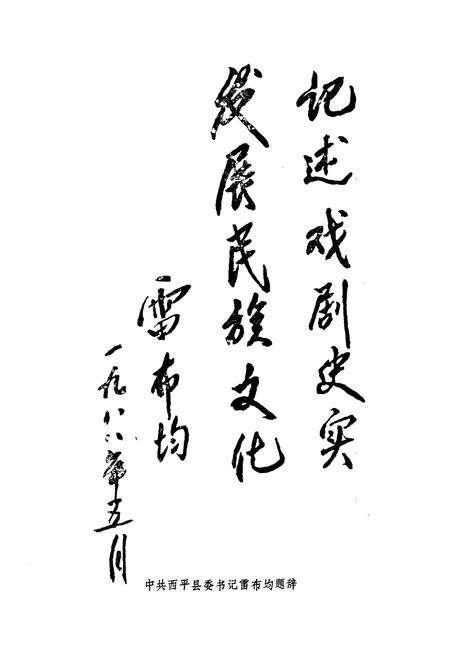 记述戏剧史实
发展民族文化
雷布均
一九八八年五月
中共西平县委书记雷布均题辞